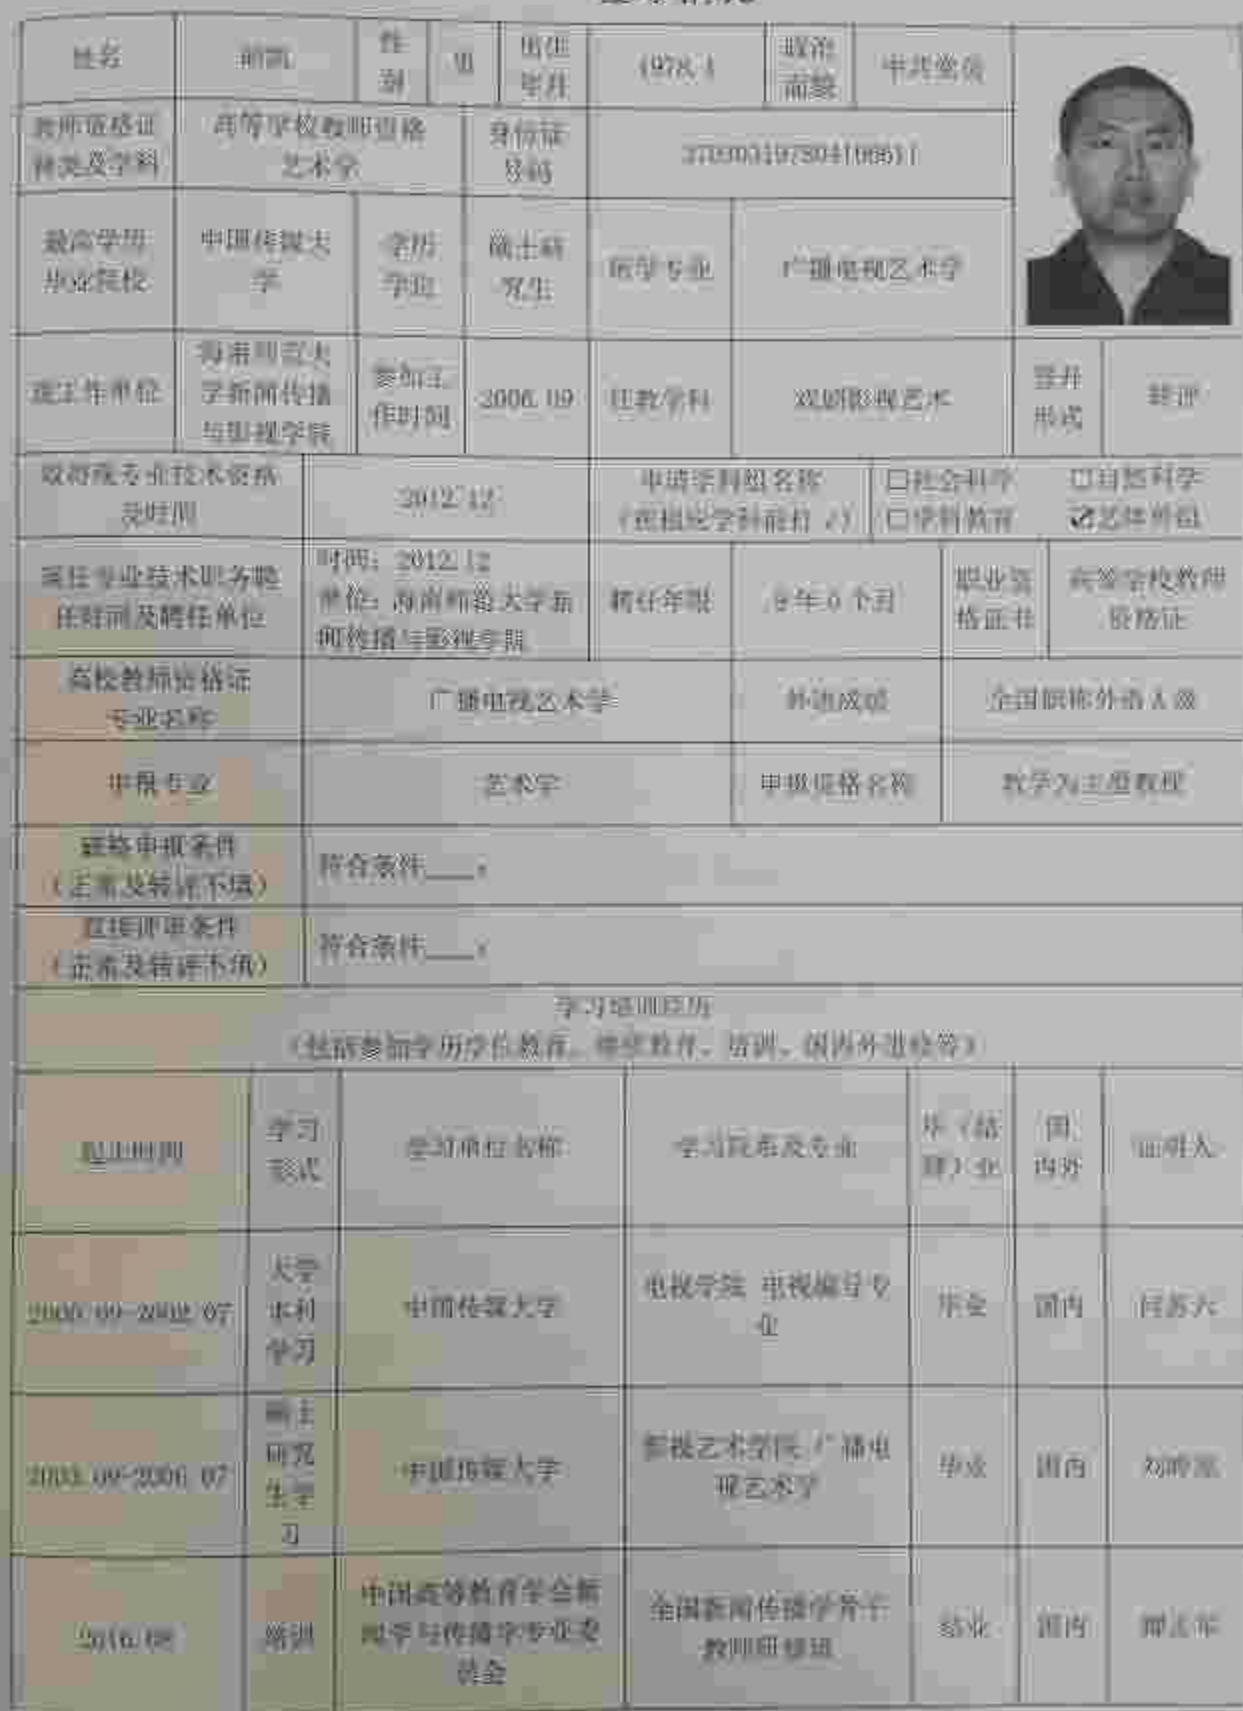 姓名
性
别
男
出生
年月
1978.4
政治
面貌
中共党员
教师资格证
种类及学科
高等学校教师资格
艺术学
身份证
号码
最高学历
毕业院校
中国传媒大
学
学历
学位
硕士研
究生
所学专业
广播电视艺术学
现工作单位
海南师范大
学新闻传播
与影视学院
参加工
作时间
2006.09
任教学科
戏剧影视艺术
晋升
形式
转评
现资格
及时间
2012.12
申请学科组名称
(在相应学科前打√)
□社会科学
□自然科学
□学科教育
☑艺体外组
现任专业技术职务聘
任时间及聘任单位
时间：2012.12
单位：海南师范大学新
闻传播与影视学院
聘任年限
9年0个月
职业资
格证书
高等学校教师
资格证
高校教师资格证
专业名称
广播电视艺术学
外语成绩
全国职称外语A级
申报专业
艺术学
申报资格名称
教学为主型教授
破格申报条件
（正常及转评不填）
符合条件___：
直接评审条件
（正常及转评不填）
符合条件___：
学习培训经历
（包括参加学历学位教育、继续教育、培训、国内外进修等）
起止时间
学习
形式
学习单位名称
学习院系及专业
毕（结
肄）业
国
内外
证明人
2000.09-2002.07
大学
本科
学习
中国传媒大学
电视学院 电视编导专
业
毕业
国内
2003.09-2006.07
硕士
研究
生学
习
中国传媒大学
影视艺术学院 广播电
视艺术学
毕业
国内
2016.08
培训
中国高等教育学会新
闻学与传播学专业委
员会
全国新闻传播学骨干
教师研修班
结业
国内